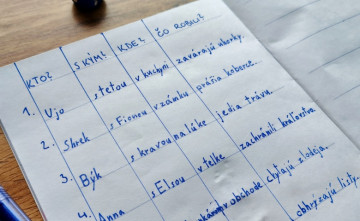 KTO? S KÝM? KDE? ČO ROBILI?
1. Ujo s tetou v kuchyni zavárajú uhorky.
2. Shrek s Fionou v zámku prášia koberce.
3. Býk s kravou na lúke jedia trávu.
4. Anna s Elsou v telke zachránili kráľovstvo.
obchode chytajú zlodeja.
obhrýzajú listy.